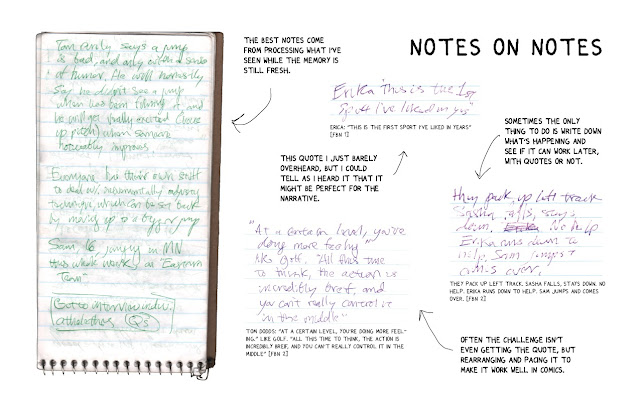 NOTES ON NOTES
Tom rarely says a jump
is bad, and only with a sense
of humor. He will honestly
say he didn't see a jump
when he's been filming it, and
he will get really excited (voice
up pitch) when someone
noticeably improves
Everyone has their own stuff
to deal w/,
technique, which can be set back
by moving up to a bigger jump
Sam 16, jumping in MN
this week
Team
Got to interview under.
Qs
THE BEST NOTES COME
FROM PROCESSING WHAT I'VE
SEEN WHILE THE MEMORY IS
STILL FRESH.
Erika "This is the 1st
sport I've liked in yrs"
ERIKA: "THIS IS THE FIRST SPORT I'VE LIKED IN YEARS"
[FBN 1]
THIS QUOTE I JUST BARELY
OVERHEARD, BUT I COULD
TELL AS I HEARD IT THAT IT
MIGHT BE PERFECT FOR THE
NARRATIVE.
SOMETIMES THE ONLY
THING TO DO IS WRITE DOWN
WHAT'S HAPPENING AND
SEE IF IT CAN WORK LATER,
WITH QUOTES OR NOT.
they pack up left track
Sasha falls, stays
down. No help
Erika runs down to
help. Sam jumps &
comes over.
THEY PACK UP LEFT TRACK. SASHA FALLS, STAYS DOWN. NO
HELP. ERIKA RUNS DOWN TO HELP. SAM JUMPS AND COMES
OVER. [FBN 2]
"At a certain level, you're
doing more feeling"
like golf. "All this time
to think, the action is
incredibly breif, and
you can't really control it
in the middle"
TOM DODDS: "AT A CERTAIN LEVEL, YOU'RE DOING MORE FEEL-
ING." LIKE GOLF. "ALL THIS TIME TO THINK, THE ACTION IS
INCREDIBLY BREIF, AND YOU CAN'T REALLY CONTROL IT IN THE
MIDDLE" [FBN 2]
OFTEN THE CHALLENGE ISN'T
EVEN GETTING THE QUOTE, BUT
REARRANGING AND PACING IT TO
MAKE IT WORK WELL IN COMICS.